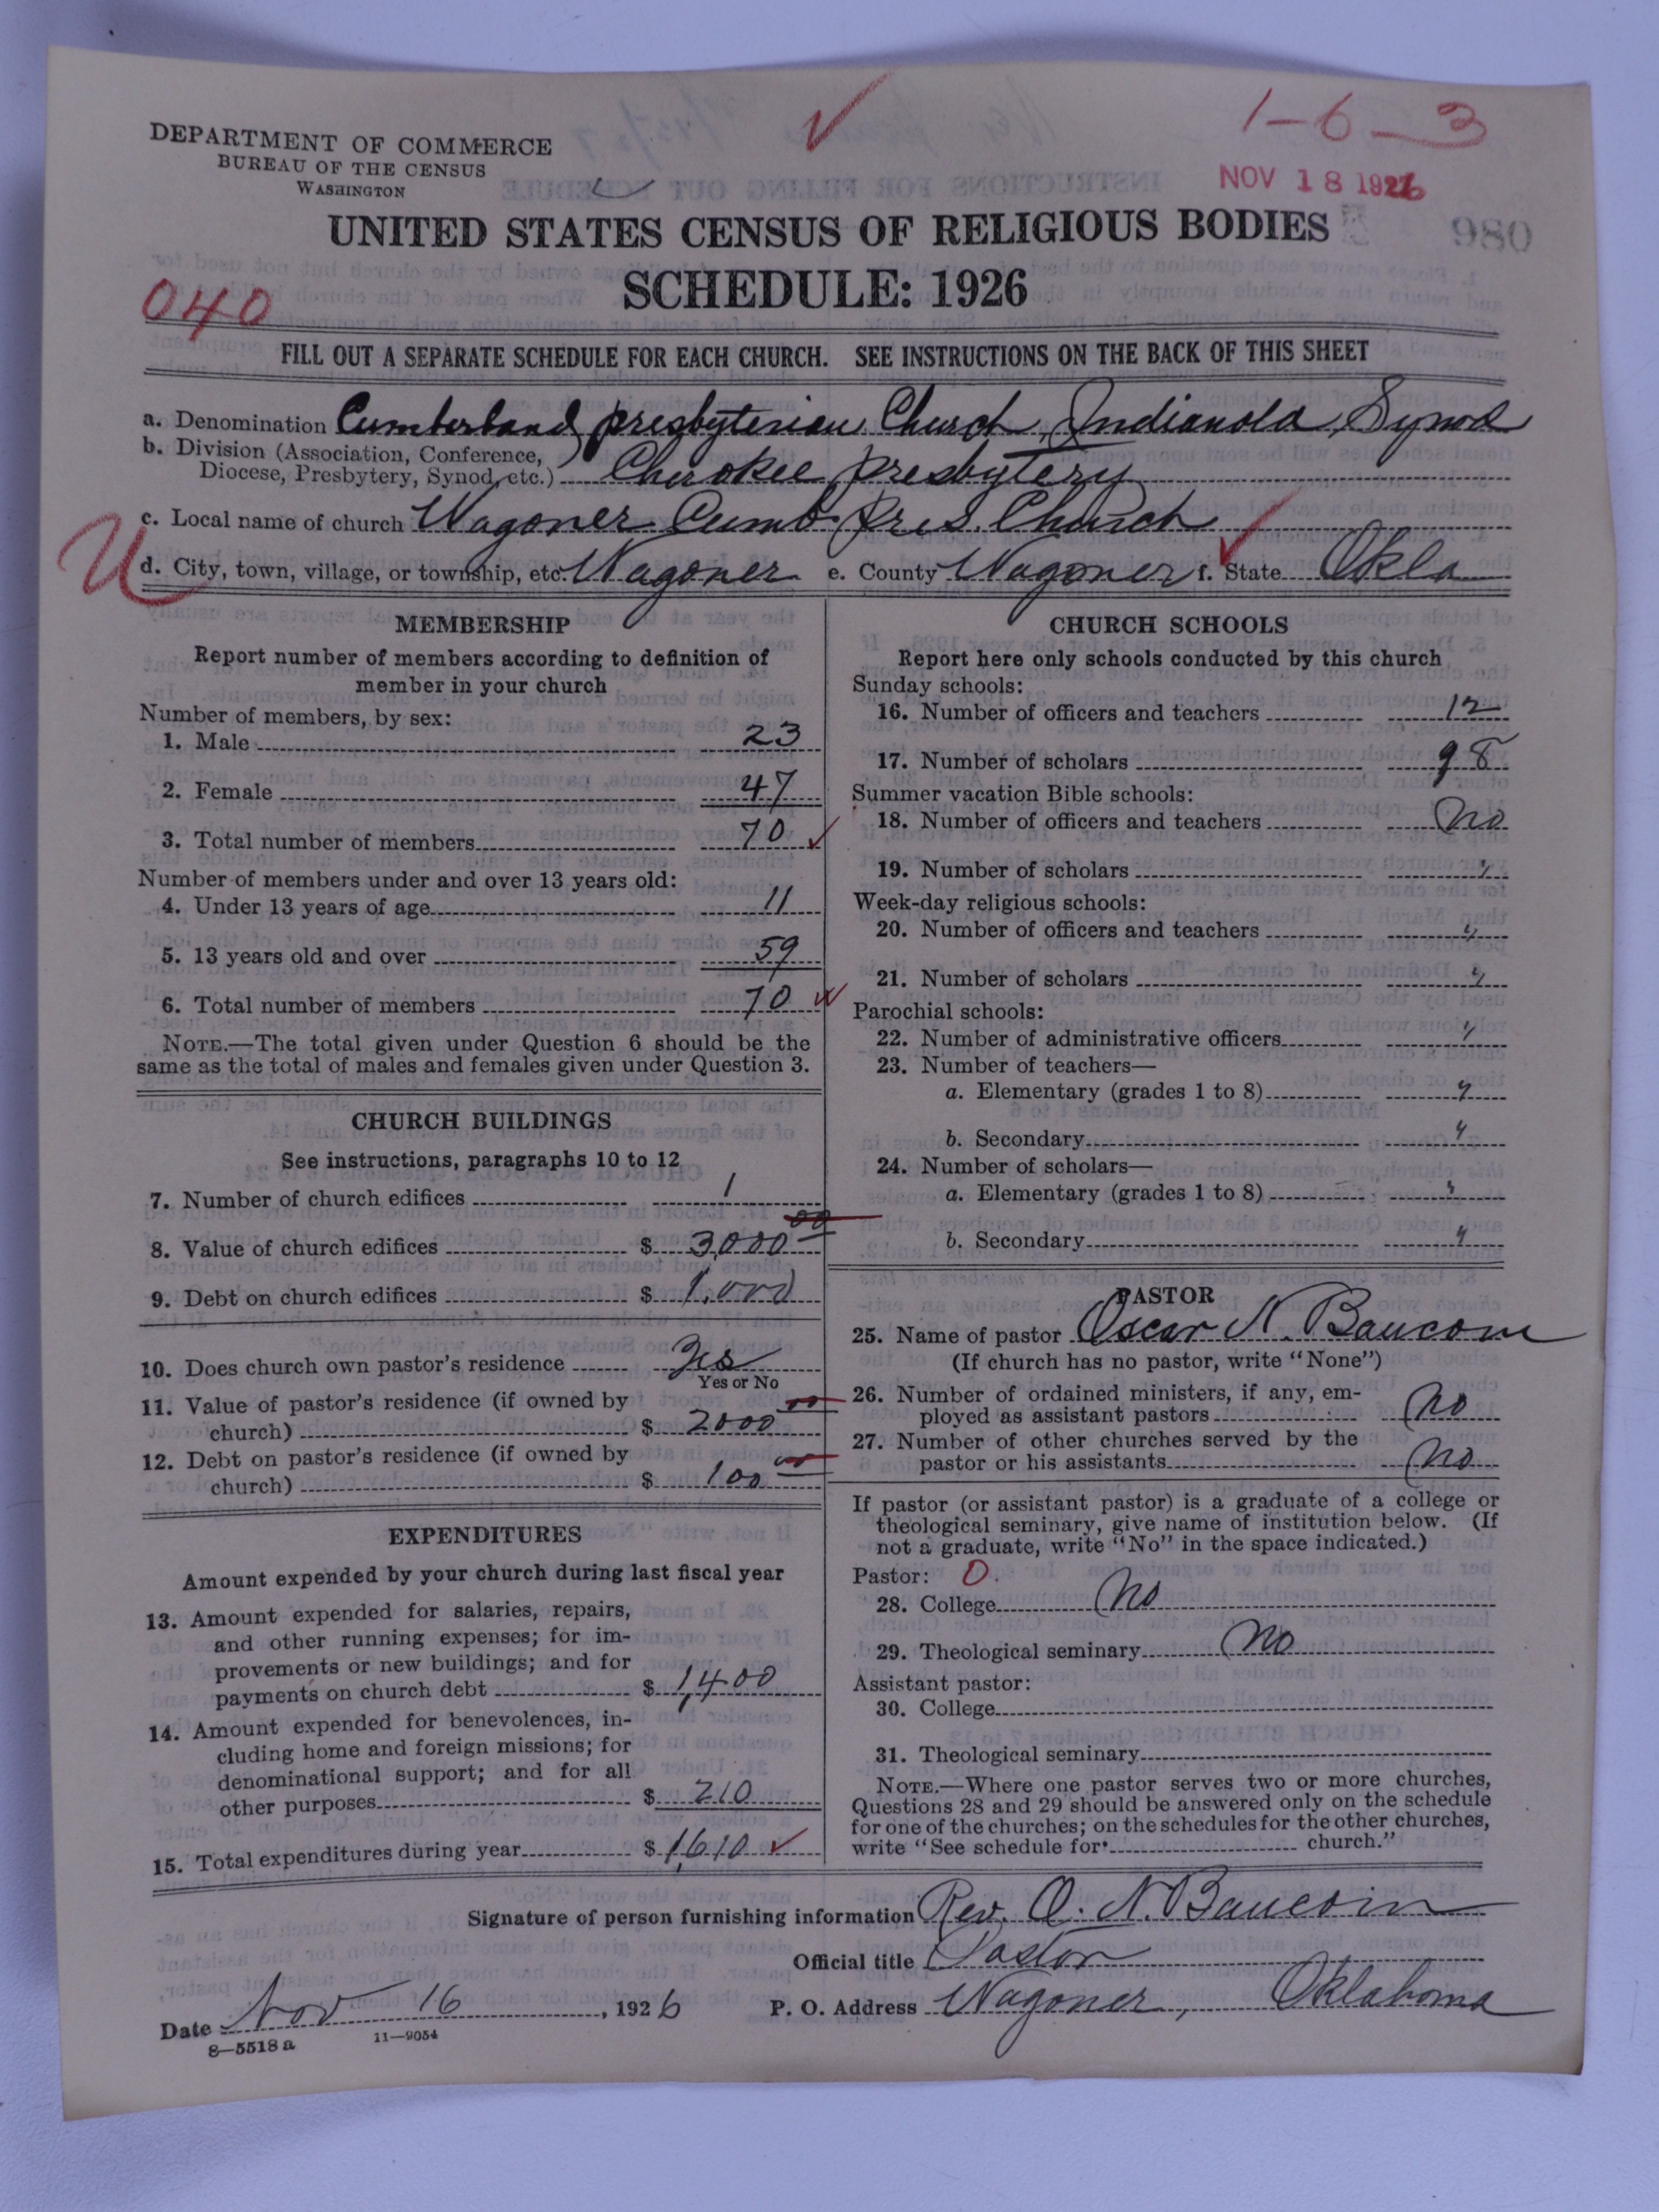 1-6-3
DEPARTMENT OF COMMERCE
BUREAU OF THE CENSUS
WASHINGTON
NOV 18 1926
UNITED STATES CENSUS OF RELIGIOUS BODIES
980
SCHEDULE: 1926
040
FILL OUT A SEPARATE SCHEDULE FOR EACH CHURCH. SEE INSTRUCTIONS ON THE BACK OF THIS SHEET
a. Denomination Cumberland Presbyterian Church, Indianola Synod
b. Division (Association, Conference,
Diocese, Presbytery, Synod, etc.) Cherokee Presbytery
c. Local name of church Wagoner Cumb. Pres. Church
U
d. City, town, village, or township, etc. Wagoner e. County Wagoner f. State Okla
MEMBERSHIP
Report number of members according to definition of
member in your church
Number of members, by sex:
1. Male 23
2. Female 47
3. Total number of members 70
Number of members under and over 13 years old:
4. Under 13 years of age 11
5. 13 years old and over 59
6. Total number of members 70
NOTE.—The total given under Question 6 should be the
same as the total of males and females given under Question 3.
CHURCH BUILDINGS
See instructions, paragraphs 10 to 12
7. Number of church edifices 1
8. Value of church edifices $ 3,000 00
9. Debt on church edifices $ 1,000
10. Does church own pastor's residence Yes
Yes or No
11. Value of pastor's residence (if owned by
church) $ 2000 00
12. Debt on pastor's residence (if owned by
church) $ 100 00
EXPENDITURES
Amount expended by your church during last fiscal year
13. Amount expended for salaries, repairs,
and other running expenses; for im-
provements or new buildings; and for
payments on church debt $ 1,400
14. Amount expended for benevolences, in-
cluding home and foreign missions; for
denominational support; and for all
other purposes $ 210
15. Total expenditures during year $ 1,610
CHURCH SCHOOLS
Report here only schools conducted by this church
Sunday schools:
16. Number of officers and teachers 12
17. Number of scholars 98
Summer vacation Bible schools:
18. Number of officers and teachers No
19. Number of scholars "
Week-day religious schools:
20. Number of officers and teachers "
21. Number of scholars "
Parochial schools:
22. Number of administrative officers "
23. Number of teachers—
a. Elementary (grades 1 to 8) "
b. Secondary "
24. Number of scholars—
a. Elementary (grades 1 to 8) "
b. Secondary "
PASTOR
25. Name of pastor Oscar N. Baucom
(If church has no pastor, write "None")
26. Number of ordained ministers, if any, em-
ployed as assistant pastors No
27. Number of other churches served by the
pastor or his assistants No
If pastor (or assistant pastor) is a graduate of a college or
theological seminary, give name of institution below. (If
not a graduate, write "No" in the space indicated.)
Pastor: 0
28. College No
29. Theological seminary No
Assistant pastor:
30. College
31. Theological seminary
NOTE.—Where one pastor serves two or more churches,
Questions 28 and 29 should be answered only on the schedule
for one of the churches; on the schedules for the other churches,
write "See schedule for church."
Signature of person furnishing information Rev. O. N. Baucom
Official title Pastor
Date Nov 16, 1926 P. O. Address Wagoner, Oklahoma
8—5518 a 11—9054